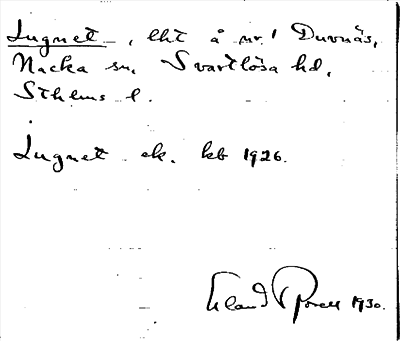 Lugnet, lht å nr 1 Duvnäs,
Nacka sn, Svartlösa hd,
Sthlms l.
Lugnet ek. kb 1926.
Erland 1930.